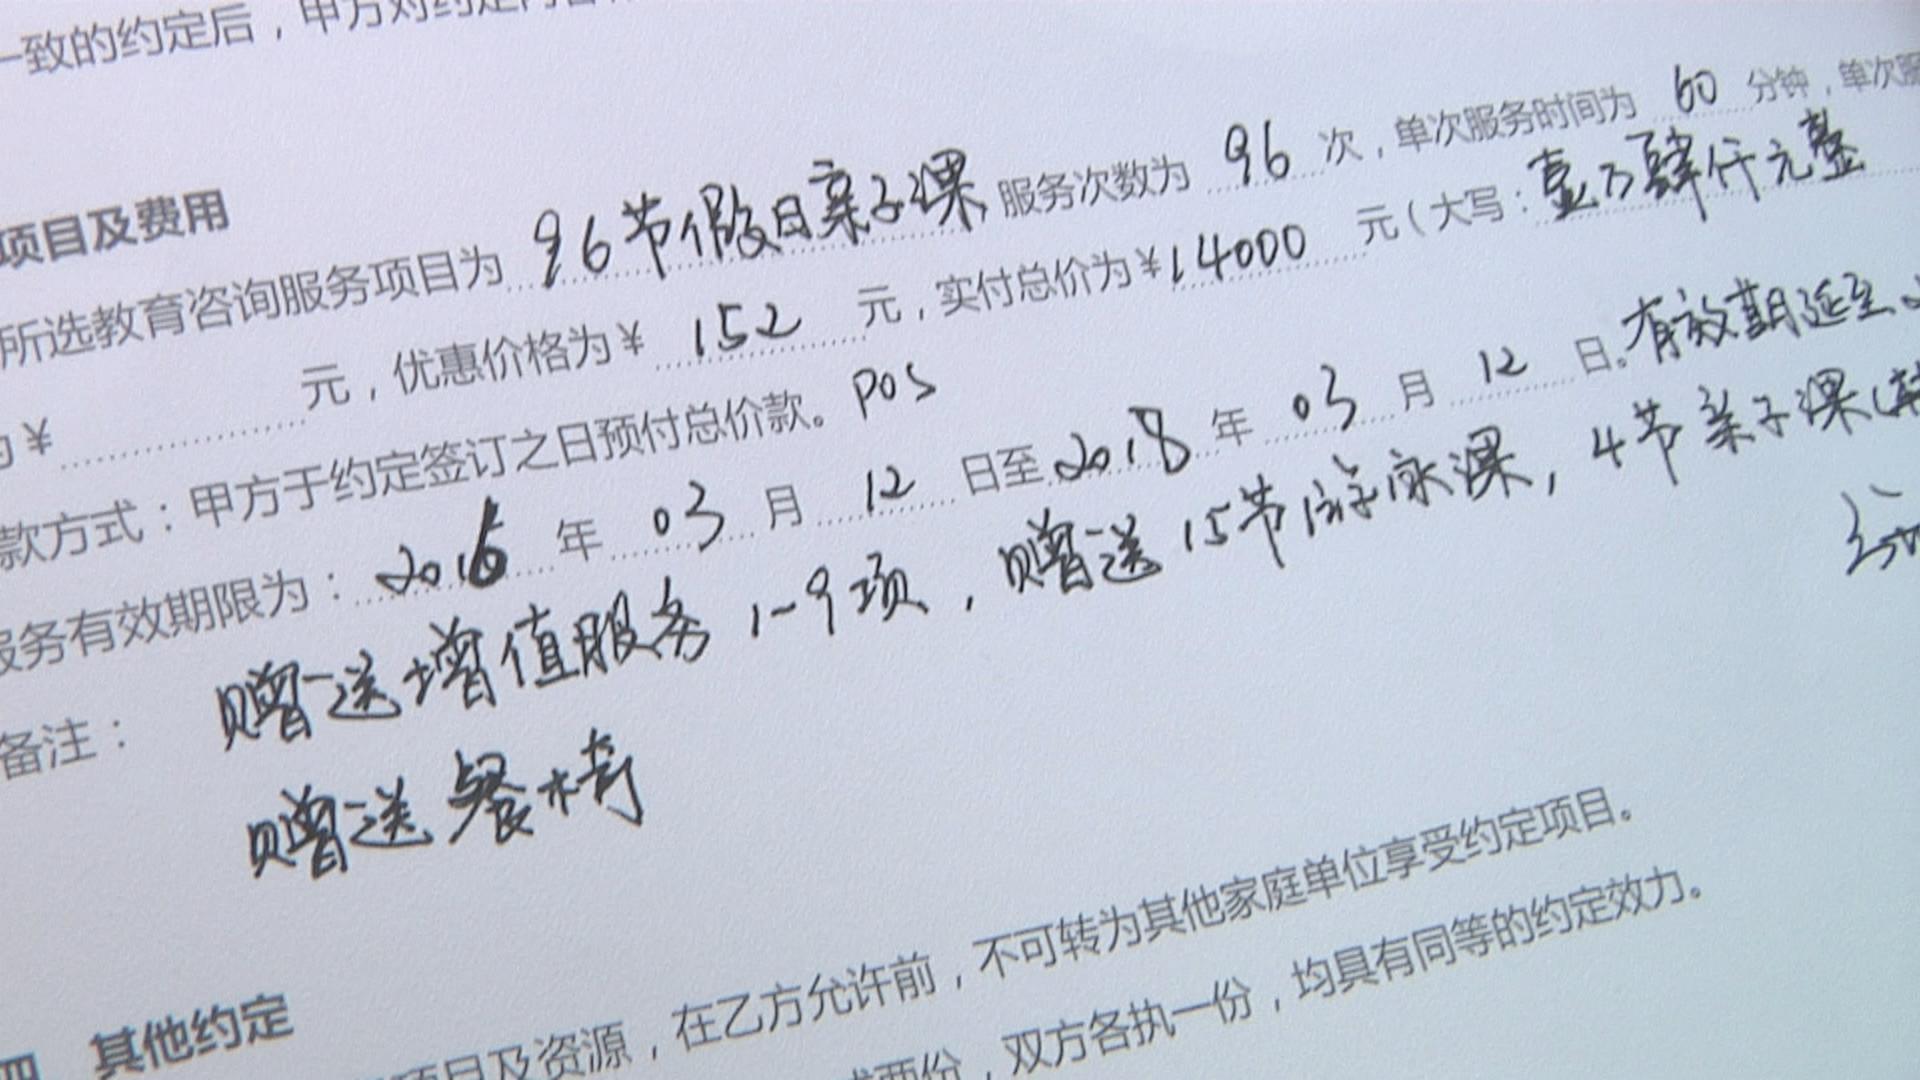 一致的约定后，甲方对约定内容
项目及费用
所选教育咨询服务项目为 96节假日亲子课 服务次数为 96 次，单次服务时间为 60 分钟，单次服
为¥ 元，优惠价格为¥ 152 元，实付总价为¥14000 元（大写：壹万肆仟元整
款方式：甲方于约定签订之日预付总价款。POS
服务有效期限为：2016 年 03 月 12 日至 2018 年 03 月 12 日。有效期延至
备注： 赠送增值服务1-9项，赠送15节游泳课，4节亲子课（
赠送餐椅
四 其他约定
项目及资源，在乙方允许前，不可转为其他家庭单位享受约定项目。
式两份，双方各执一份，均具有同等的约定效力。